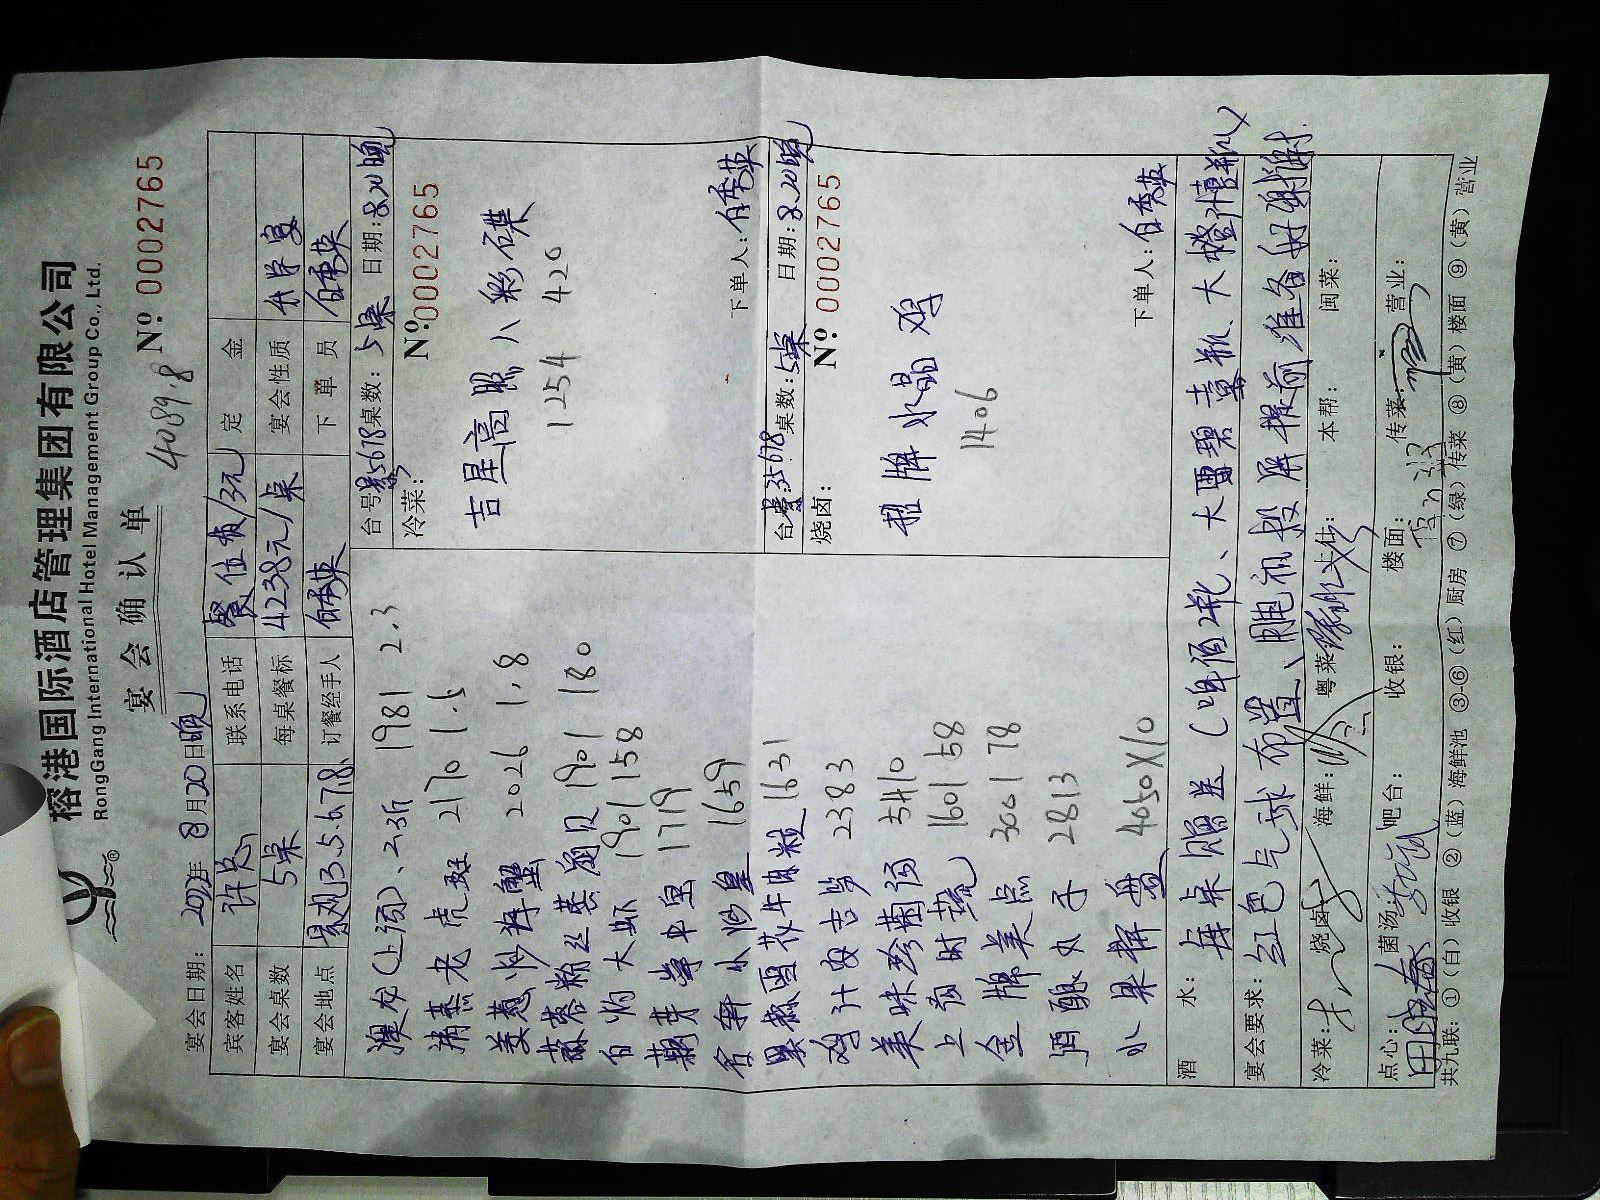 榕港国际酒店管理集团有限公司
RongGang International Hotel Management Group Co., Ltd.
宴会确认单
4089.8
Nº 0002765
宴会日期: 2022年 8月20日晚
宾客姓名 许总 联系电话 餐位板/3元 定金
宴会桌数 5桌 每桌餐标 4238元/桌 宴会性质 升学宴
宴会地点 3.5.6.7.8 订餐经手人 白秀英 下单员 白秀英
澳龙(上汤)、2.3斤 1981 2.3
清蒸老虎斑 2170 1.5
姜葱炒海蟹 2026 1.8
蒜蓉粉丝蒸扇贝 1901 180
白灼大虾 1901 158
1719
小炒皇 1659
黑椒雪花牛肉粒 1631
鸡汁 2383
美味珍菌汤 5410
上汤时蔬 1601 58
金牌美点 3001 78
酒酿丸子 2813
水果拼盘 4050X10
台号: 35678 桌数: 5桌 日期: 8.20晚
冷菜:
Nº 0002765
吉星高照八彩碟
1254 420
下单人: 白秀英
台号: 35678 桌数: 5桌 日期: 8.20晚
烧卤:
Nº 0002765
招牌水晶鸡
1406
下单人: 白秀英
酒水: 每桌赠送(啤酒2瓶、大雪碧壹瓶、大橙汁壹瓶)
宴会要求: 红色气球布置、电视投屏提前准备好谢谢
冷菜: 烧卤: 海鲜: 粤菜: 上什: 本帮: 闽菜:
点心: 菌汤: 吧台: 收银: 楼面: 传菜: 营业:
共九联: ①(白)收银 ②(蓝)海鲜池 ③-⑥(红)厨房 ⑦(绿)传菜 ⑧(黄)楼面 ⑨(黄)营业